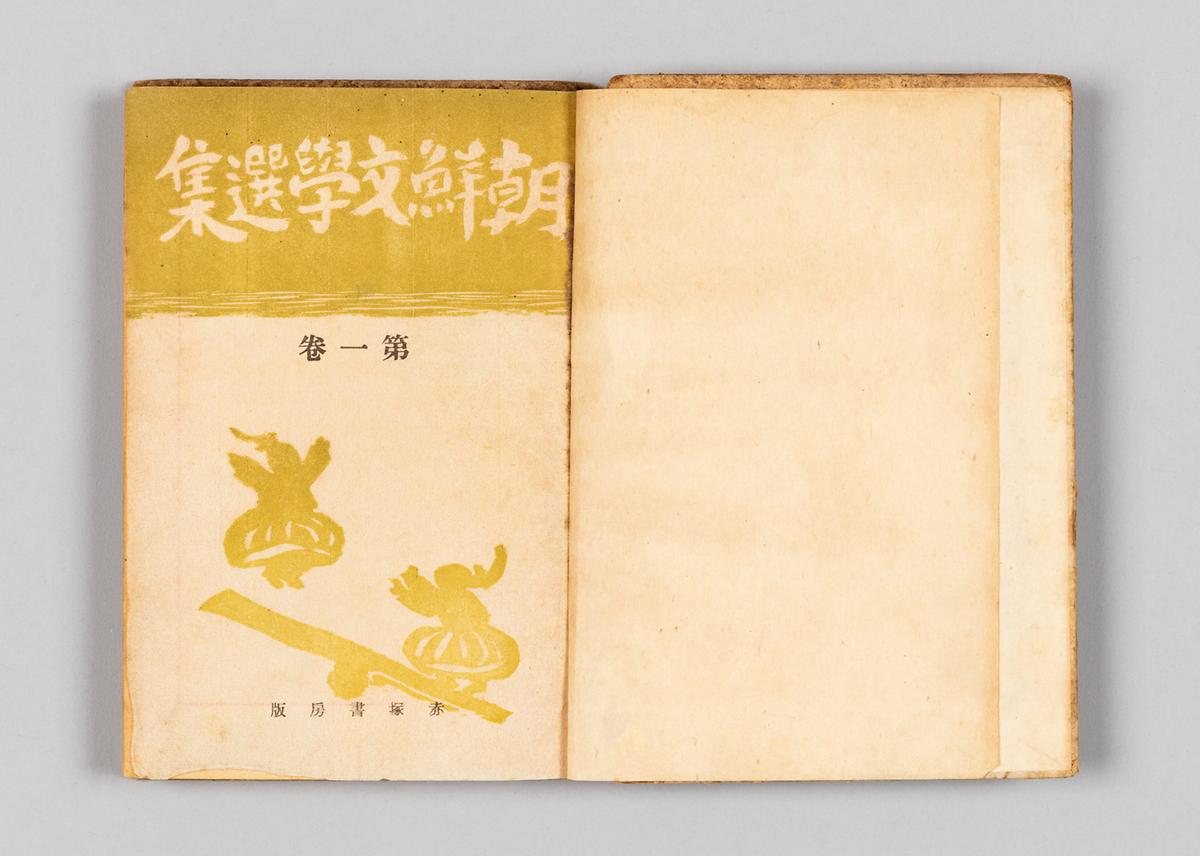 朝鮮文學選集
第一卷
赤塚書房版